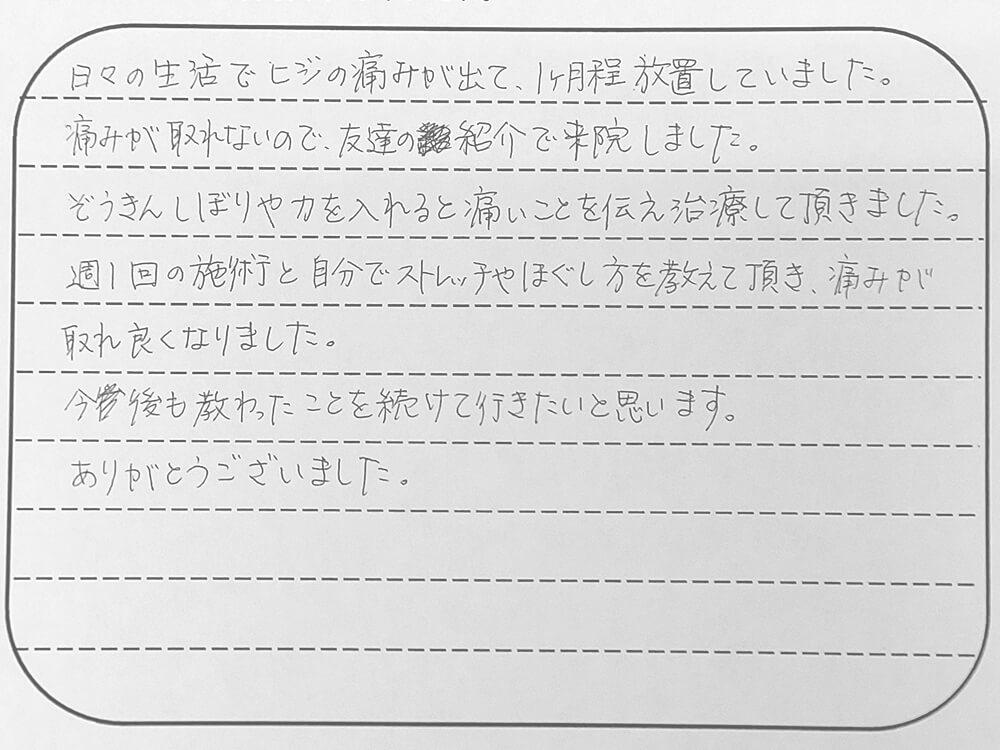 日々の生活でヒジの痛みが出て、1ヶ月程放置していました。
痛みが取れないので、友達の紹介で来院しました。
ぞうきんしぼりや力を入れると痛いことを伝え治療して頂きました。
週1回の施術と自分でストレッチやほぐし方を教えて頂き、痛みが
取れ良くなりました。
今後も教わったことを続けて行きたいと思います。
ありがとうございました。